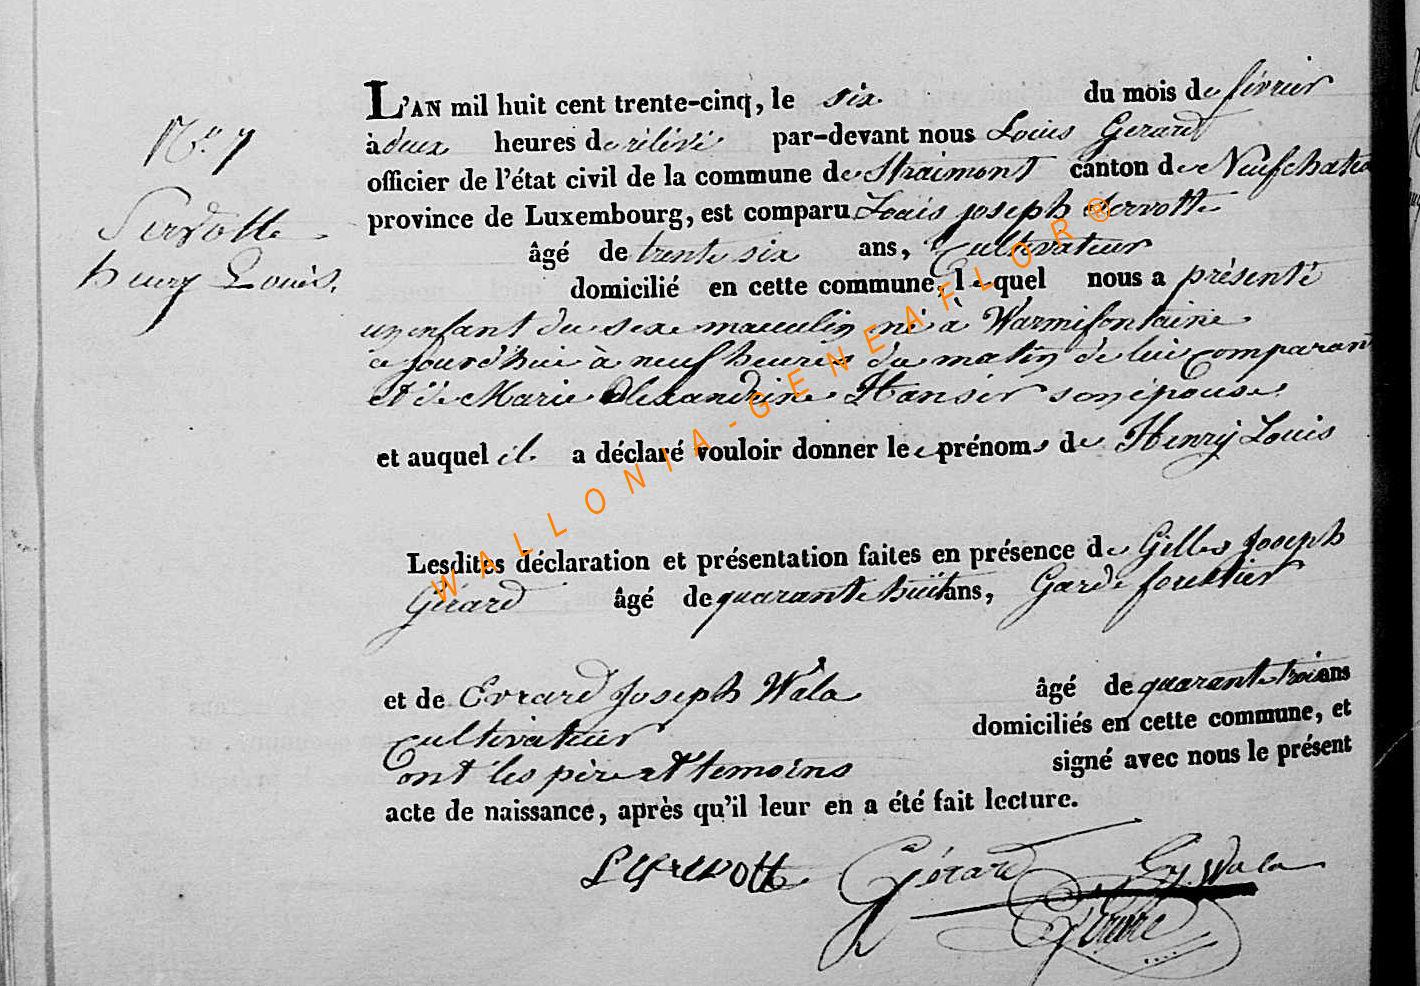 N.º 7
Servotte
henry Louis.
L'AN mil huit cent trente-cinq, le six du mois de février
à deux heures de rélévé par-devant nous Louis Gerard
officier de l'état civil de la commune de Straimont canton de Neufchatea
province de Luxembourg, est comparu Louis joseph Servotte
âgé de trente six ans, Cultivateur
domicilié en cette commune, lequel nous a présenté
un enfant du sexe masculin né à Warmifontaine
ce jourd'hui à neuf heures du matin de lui comparant
et de Marie Alexandrine Hansir son épouse
et auquel il a déclaré vouloir donner le prénoms de Henry Louis
Lesdites déclaration et présentation faites en présence de Gilles Joseph
Gérard âgé de quarante huit ans, Garde forestier
et de Evrard Joseph Wala âgé de quarante trois ans
cultivateur domiciliés en cette commune, et
ont les père et temoins signé avec nous le présent
acte de naissance, après qu'il leur en a été fait lecture.
LJServotte Gérard EJ Wala
Gérard
WALLONIA-GENEAFLOR®